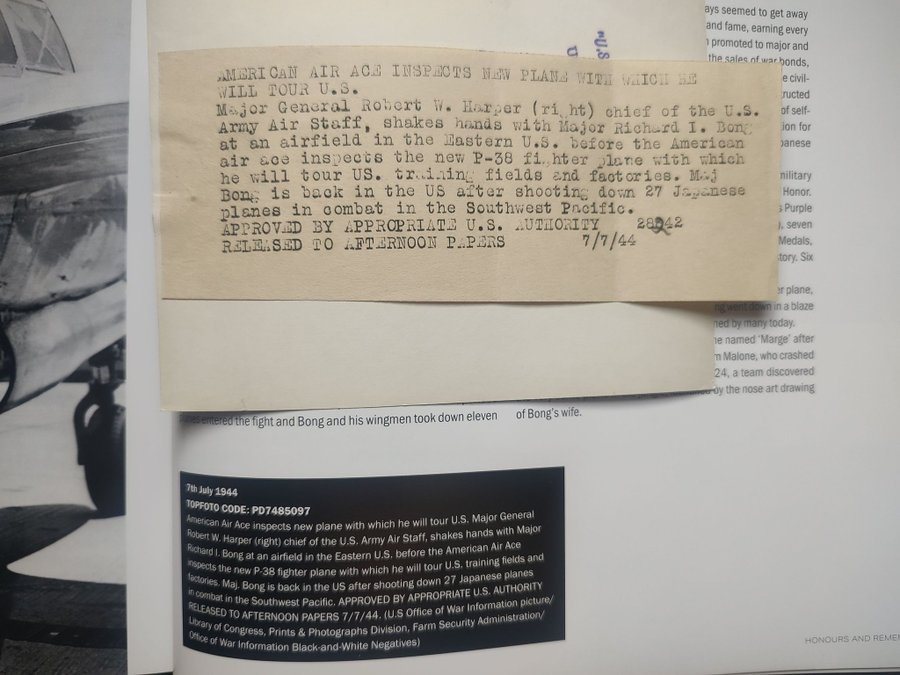 "U.S
AMERICAN AIR ACE INSPECTS NEW PLANE WITH WHICH HE
WILL TOUR U.S.
Major General Robert W. Harper (right) chief of the U.S.
Army Air Staff, shakes hands with Major Richard I. Bong
at an airfield in the Eastern U.S. before the American
air ace inspects the new P-38 fighter plane with which
he will tour US. training fields and factories. Maj
Bong is back in the US after shooting down 27 Japanese
planes in combat in the Southwest Pacific.
APPROVED BY APPROPRIATE U.S. AUTHORITY 28242
RELEASED TO AFTERNOON PAPERS 7/7/44
seemed to get away
and fame, earning every
promoted to major and
the sales of war bonds,
civil-
of self-
for
military
Honor.
Purple
seven
Medals,
Six
plane,
went down in a blaze
by many today.
named 'Marge' after
Malone, who crashed
24, a team discovered
by the nose art drawing
entered the fight and Bong and his wingmen took down eleven
of Bong's wife.
7th July 1944
TOPFOTO CODE: PD7485097
American Air Ace inspects new plane with which he will tour U.S. Major General
Robert W. Harper (right) chief of the U.S. Army Air Staff, shakes hands with Major
Richard I. Bong at an airfield in the Eastern U.S. before the American Air Ace
inspects the new P-38 fighter plane with which he will tour U.S. training fields and
factories. Maj. Bong is back in the US after shooting down 27 Japanese planes
in combat in the Southwest Pacific. APPROVED BY APPROPRIATE U.S. AUTHORITY
RELEASED TO AFTERNOON PAPERS 7/7/44. (U.S Office of War Information picture/
Library of Congress, Prints & Photographs Division, Farm Security Administration/
Office of War Information Black-and-White Negatives)
HONOURS AND